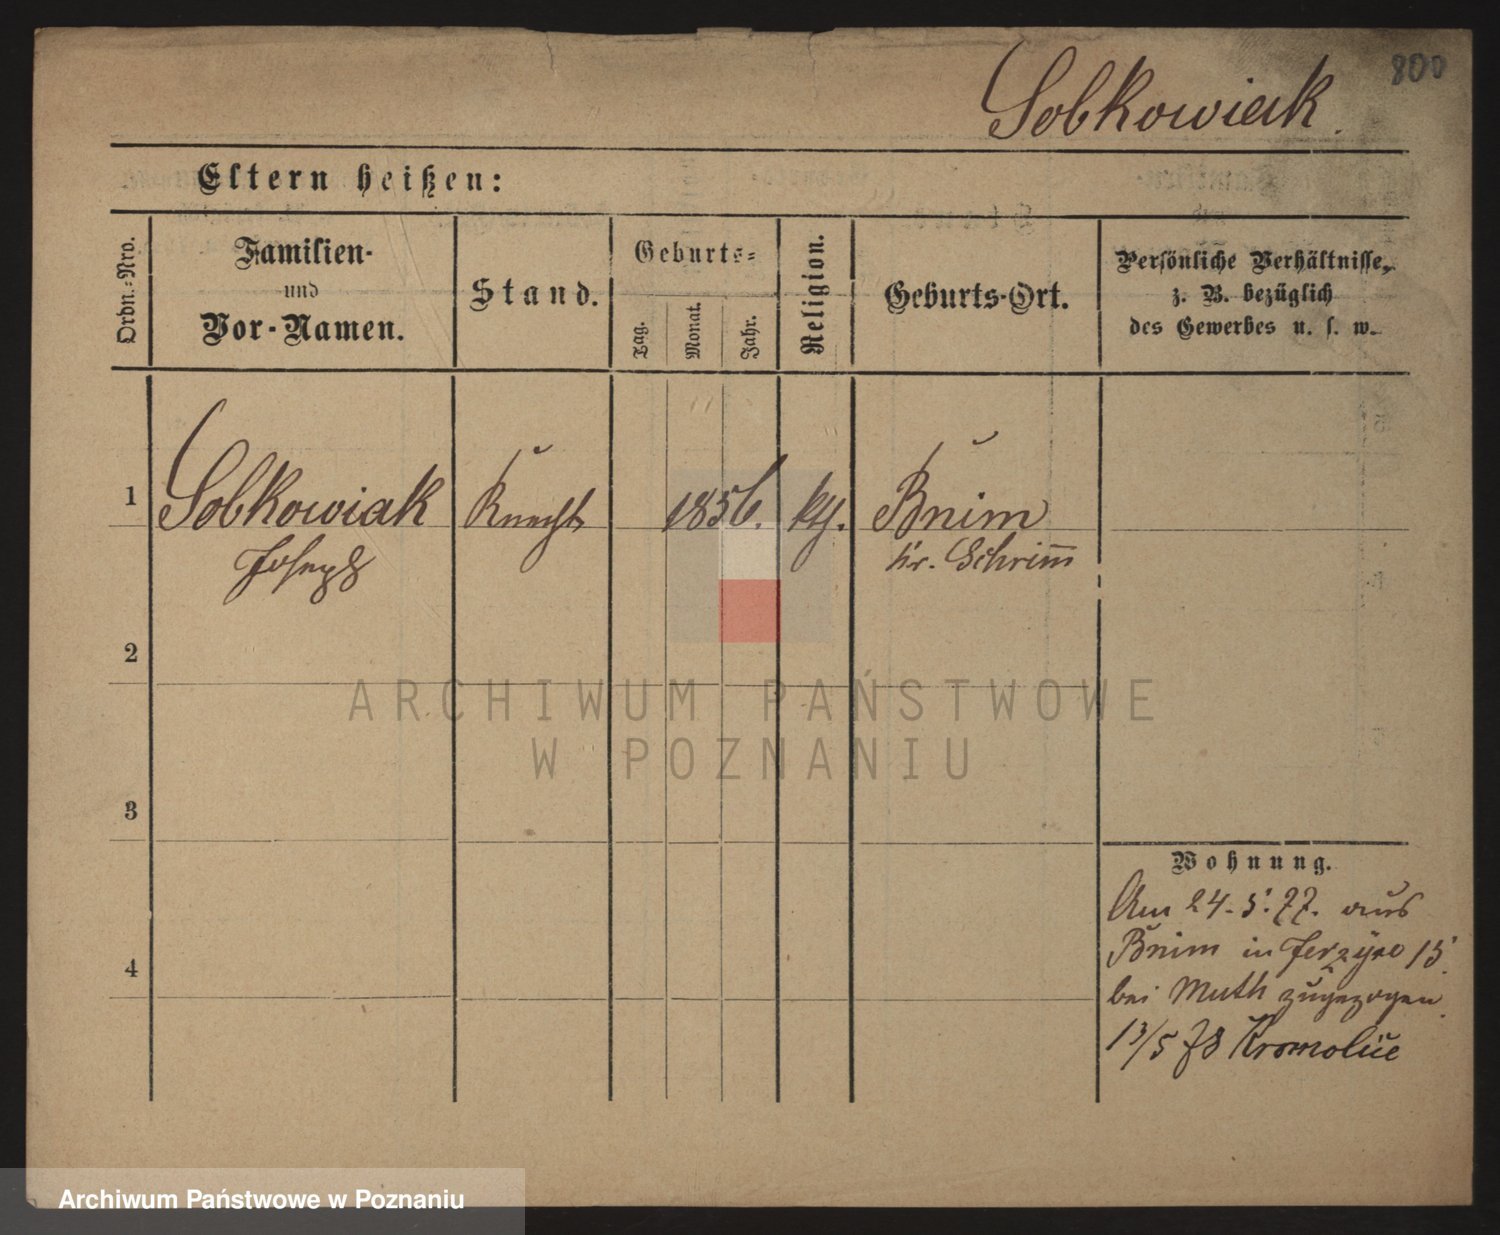 800
Sobkowiak.
Eltern heißen:
Ordn.-Nro.
Familien-
und
Vor-Namen.
Stand.
Geburts-
Tag.
Monat.
Jahr.
Religion.
Geburts-Ort.
Persönliche Verhältnisse,
z. B. bezüglich
des Gewerbes u. s. w.
1
Sobkowiak
Joseph
Knecht
1856.
kth.
Bnim
Kr. Schrim̅
2
3
4
Wohnung.
Am 24.5.77. aus
Bnim in Jerzyce 15
bei Muth zugezogen.
13/5 78 Kromolice
ARCHIWUM PAŃSTWOWE
W POZNANIU
Archiwum Państwowe w Poznaniu